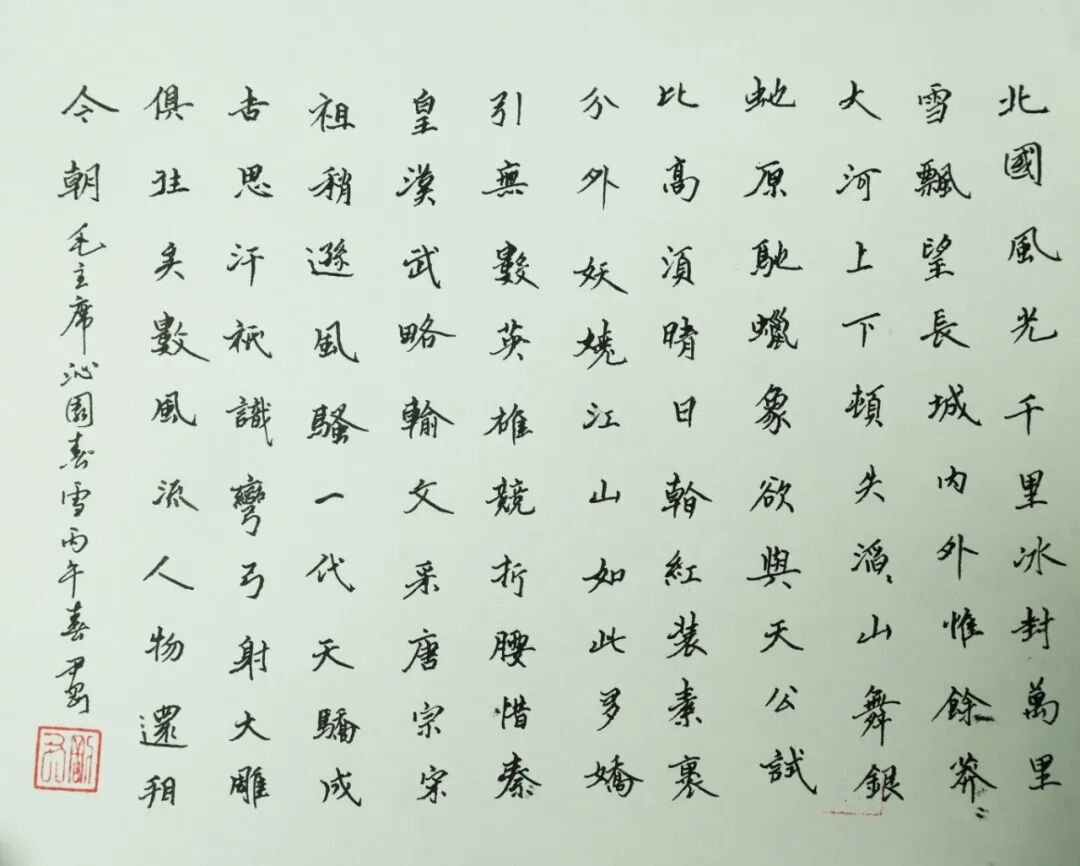 北國風光千里冰封萬里
雪飄望長城內外惟餘莽〻
大河上下頓失滔〻山舞銀
虵原馳蠟象欲與天公試
比高須晴日看紅装素裹
分外妖嬈江山如此多嬌
引無數英雄競折腰惜秦
皇漢武略輸文采唐宗宋
祖稍遜風騷一代天驕成
吉思汗祇識彎弓射大雕
俱往矣數風流人物還看
今朝 毛主席沁園春雪丙午春尹